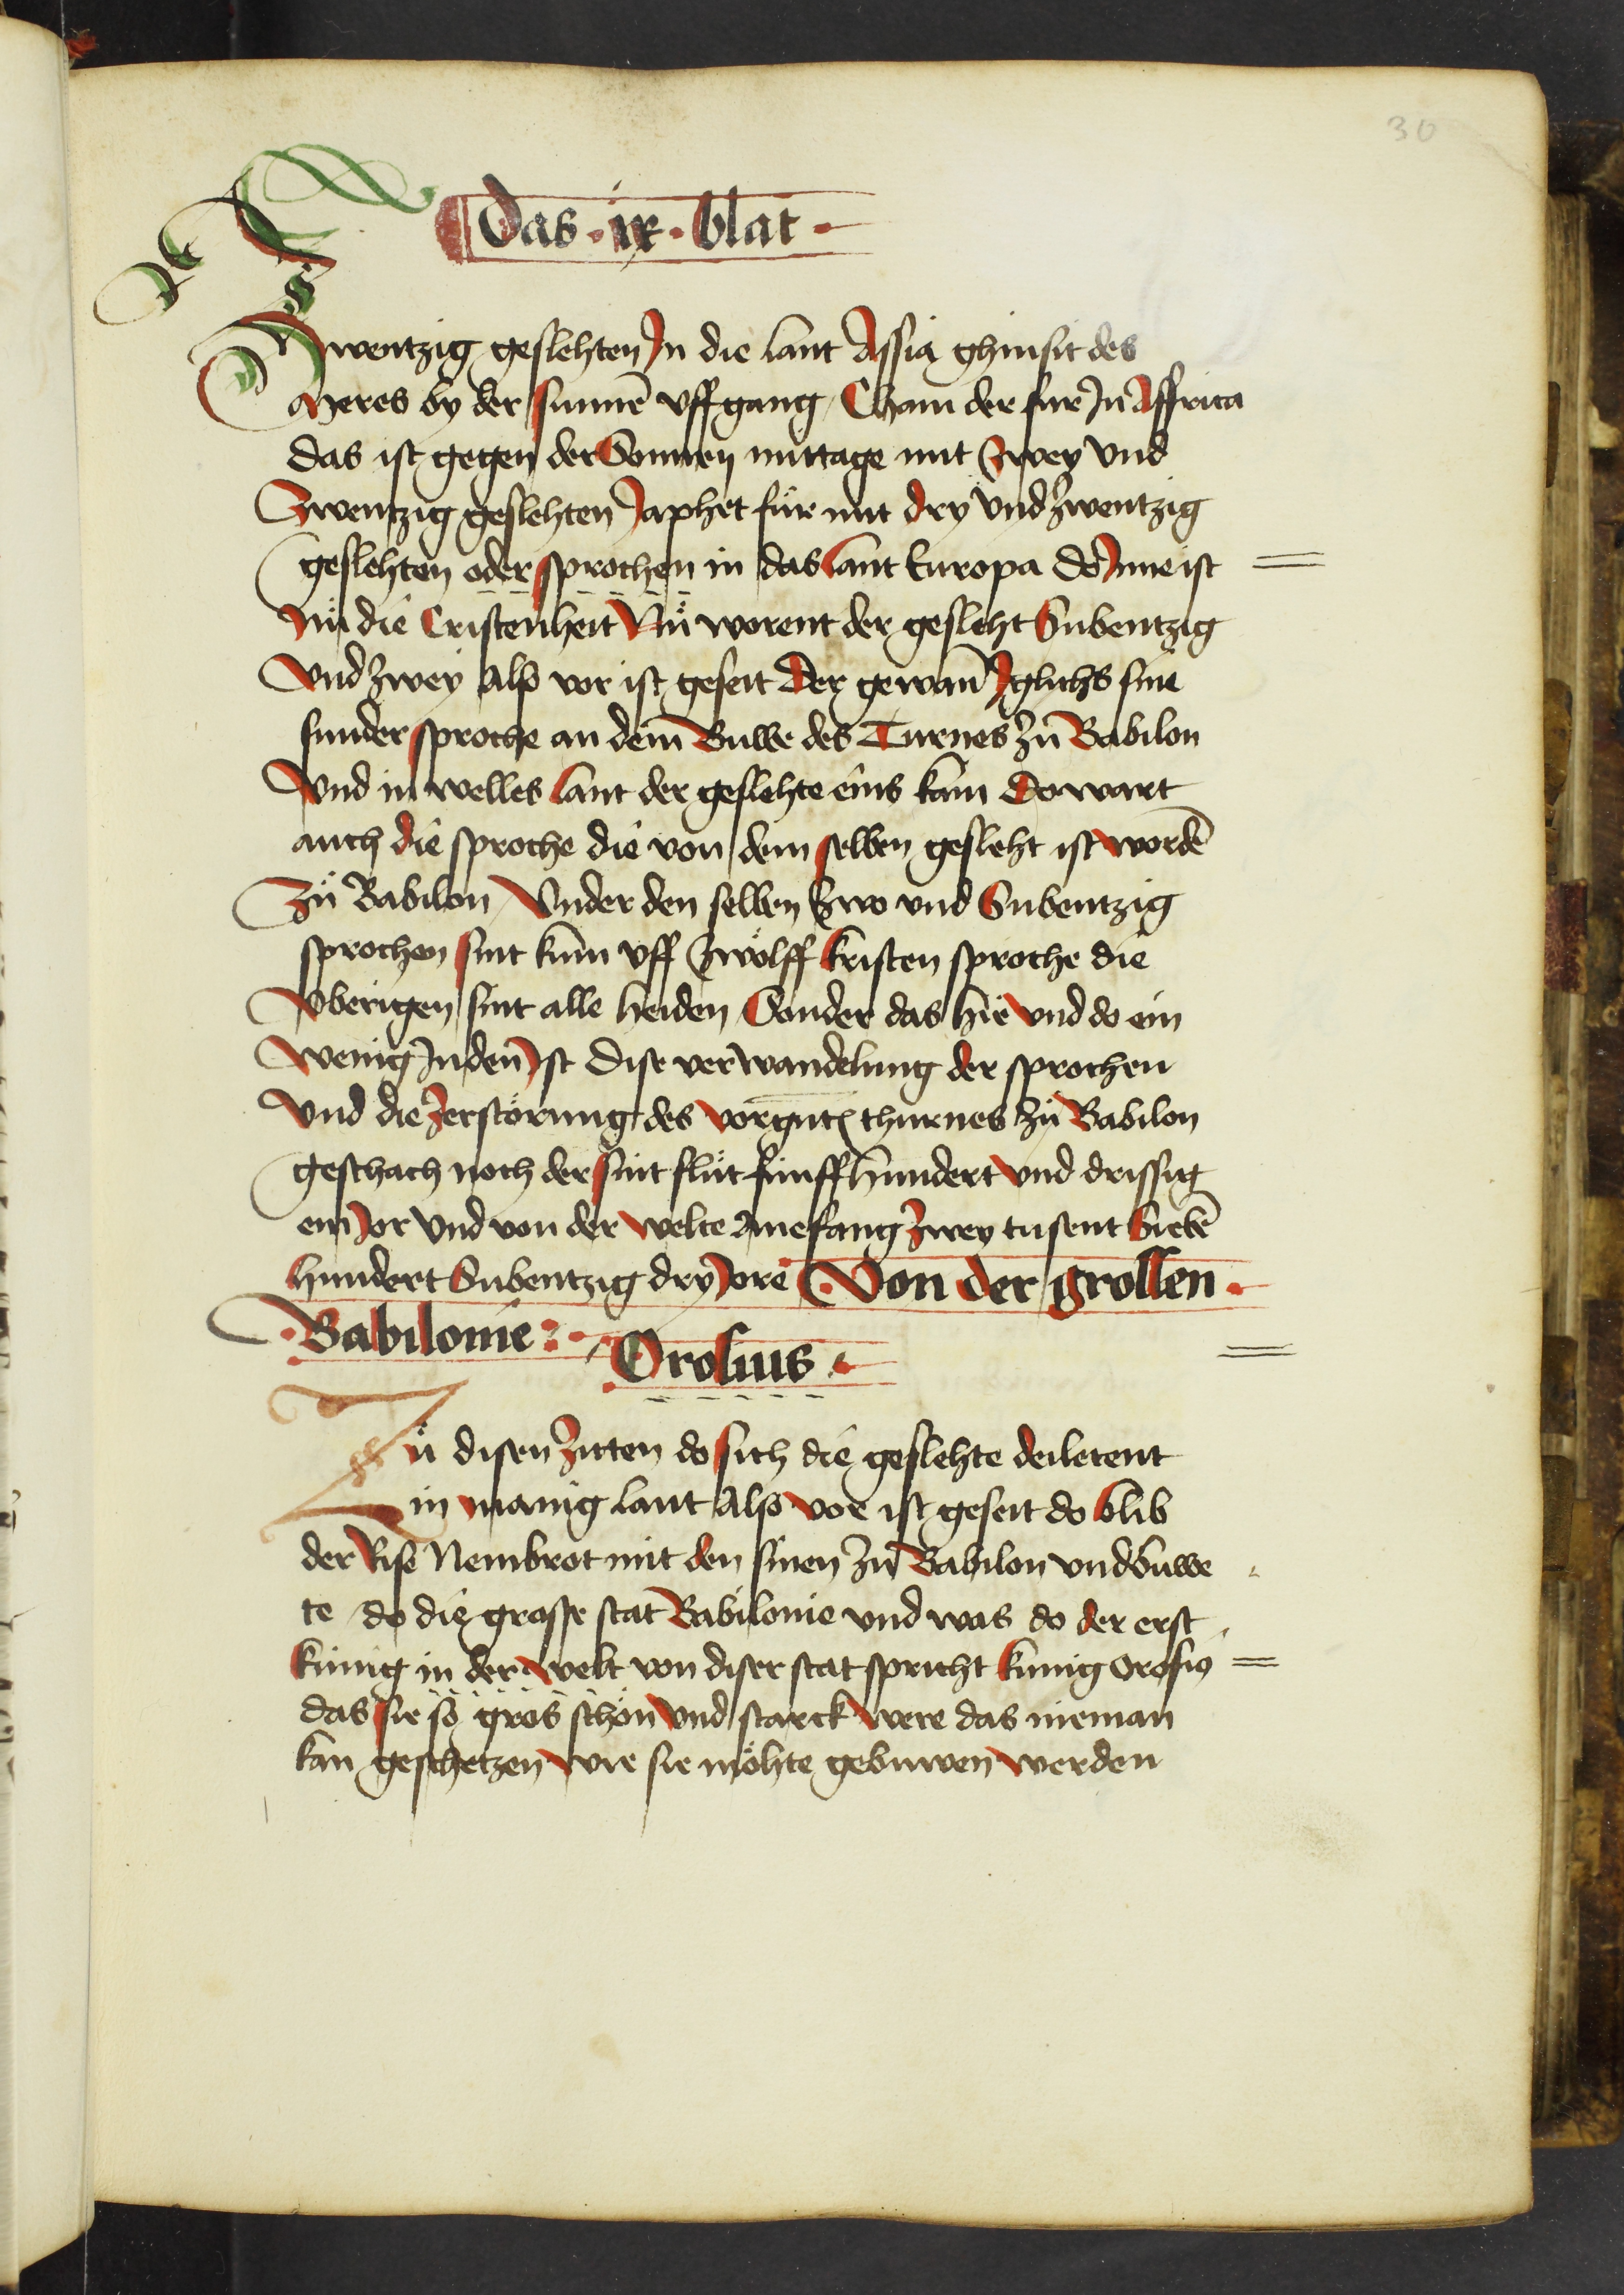 30
Das · ix · blat ·
Zwentzig geslehten Jn die lant Assia ghinsit des
Meres by der sunnē vffgang / Cham der fur Jn Affrica
das ist gegen der Sonnen mittage mit Zwey vnd
Zwentzig geslehten Japhet fůr mit dry vnd Zwentzig
geslehten oder sprochen in das lant Europa do Jnne ist
Nů die Cristenheit Nů worent der gesleht Subentzig
vnd Zwey Also vor ist geseit Der gewan̄ Jglichs sine
sunder sproche an dem Buwe des Turnes zů Babilon
vnd in welles lant der geslehte eins kam Do wart
auch die sproche die von dem selben gesleht ist wordē
Zů Babilon / Vnder den selben Zwo vnd Subentzig
sprochen sint kum vff Zwolff kristen sproche die
vberigen sint alle heiden Sonder das hie vnd do ein
wenig Juden Jst Dise verwandelung der sprochen
vnd die Zerstörung des vorgnt~ thurnes zů Babilon
geschach noch der sint flůt fünff hundert vnd drissig
ein Jor vnd von der welte Anefang Zwey tusent Siebē
hundert Subentzig dry Jore Von der grossen ·
· Babilonie :·
Orosius ·
Zů disen Zitten do sich die geslehte deiletent
in manig lant Also vor ist geseit do blib
der Rise Nembrot mit den sinen zů Babilon vnd buwe
te do die grosse stat Babilonie vnd was do der erst
künig in der welt von diser stat spricht künig Orosiꝰ
das sie so gros schön vnd starck were das nieman
kan geschetzen wie sie möhte gebuwen werden